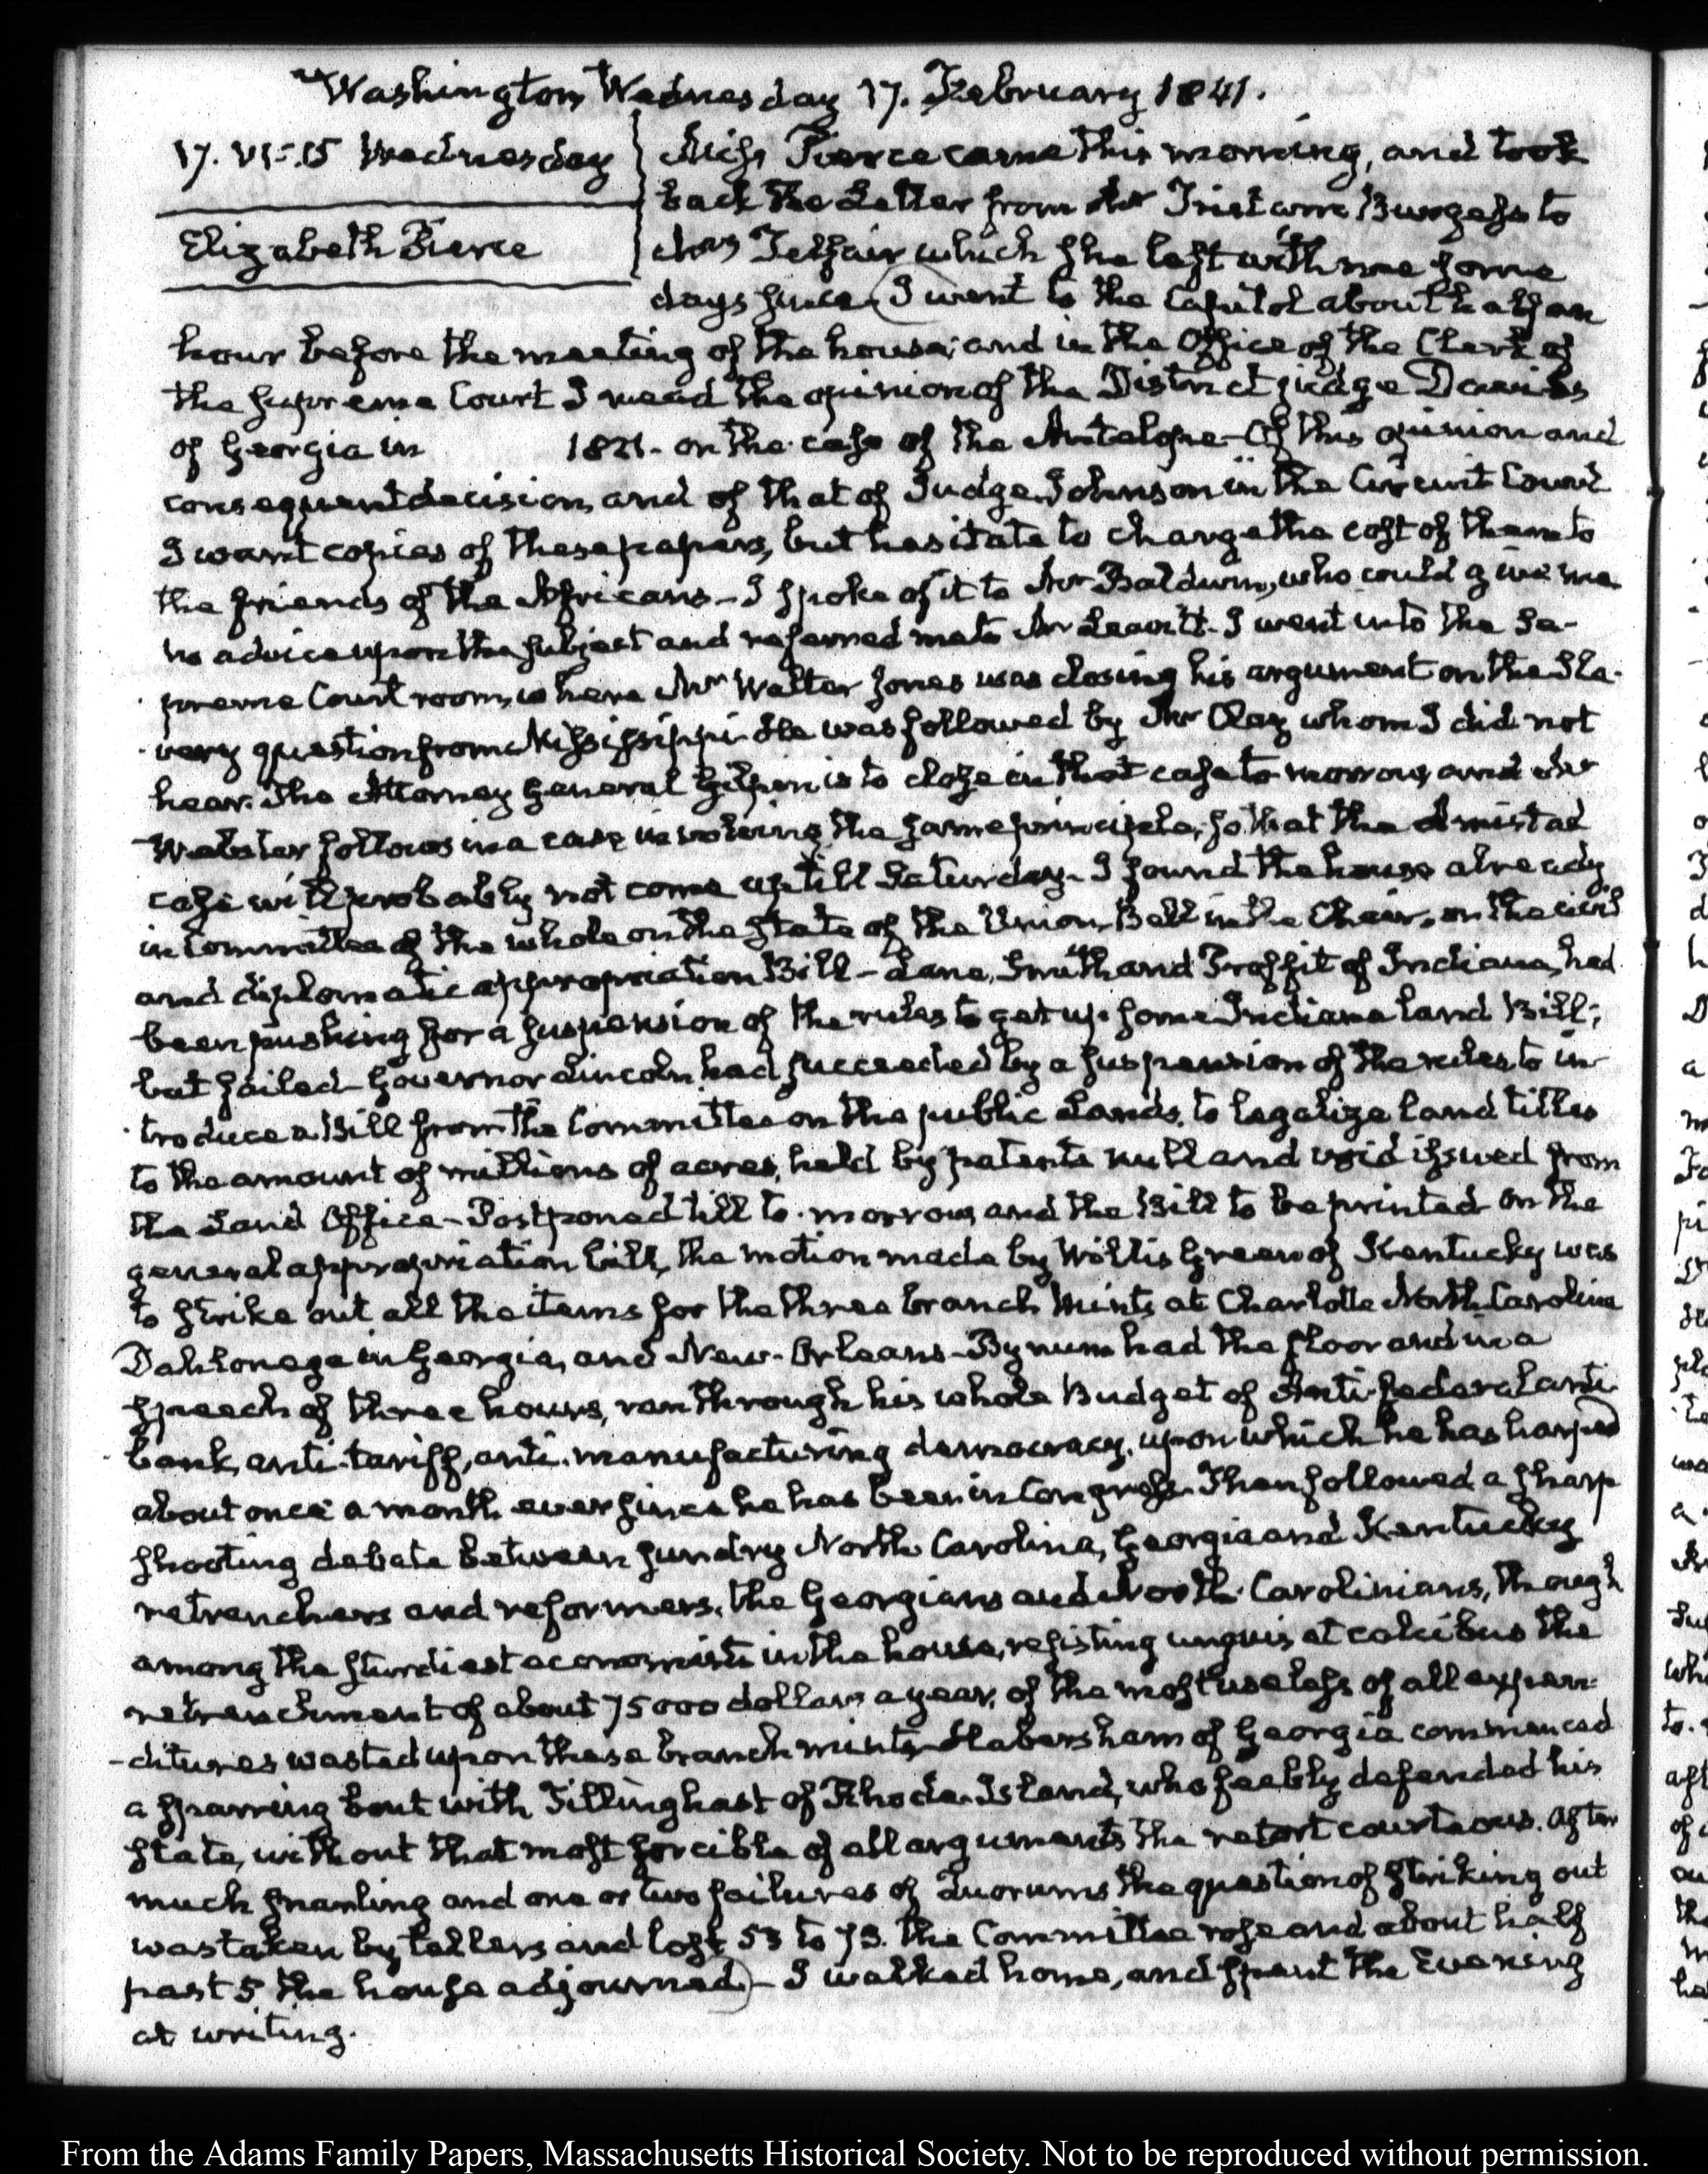 Washington Wednesday 17. February 1841.
17. VI:15 Wednesday
Elizabeth Pierce
Miss Pierce came this morning, and took
back the Letter from Mr Tristram Burgess to
Mrs Telfair which she left with me some
days since (I went to the Capitol about half an
hour before the meeting of the house; and in the Office of the Clerk of
the Supreme Court I read the opinion of the District judge Davies
of Georgia in 1821. on the case of the Antelope - Of this opinion and
consequent decision, and of that of Judge Johnson in the Circuit Court
I want copies of these papers, but hesitate to charge the cost of them to
the friends of the Africans - I spoke of it to Mr Baldwin, who could give me
no advice upon the subject and referred me to Mr Leavitt. I went into the Su-
preme Court room, where Mr Walter Jones was closing his argument on the Sla-
very question from Mississippi - He was followed by Mr Clay whom I did not
hear. The Attorney General Gilpin is to close in that case to-morrow, and Mr
Webster follows in a case involving the same principle; so that the Amistad
case will probably not come up till Saturday - I found the house already
in Committee of the whole on the state of the Union, Bell in the Chair, on the civil
and diplomatic appropriation Bill - Lane, Smith and Proffit of Indiana, had
been pushing for a suspension of the rules to get up some Indiana land Bill;
but failed - Governor Lincoln had succeeded by a suspension of the rules to in-
troduce a Bill from the Committee on the public Lands, to legalize land titles
to the amount of millions of acres, held by patents null and void issued from
the Land Office - Postponed till to-morrow, and the Bill to be printed - On the
general appropriation bill, the motion made by Willis Green of Kentucky was
to strike out all the items for the three branch Mints at Charlotte North Carolina
Dahlonega in Georgia, and New-Orleans - Bynum had the floor and in a
speech of three hours, ran through his whole Budget of Anti-federal anti-
bank, anti-tariff, anti-manufacturing democracy, upon which he has harped
about once a month ever since he has been in Congress. Then followed a sharp
shooting debate between sundry North Carolina, Georgia and Kentucky
retrenchers and reformers, the Georgians and North-Carolinians, though
among the sturdiest economists in the house, resisting unguis et calcibus the
retrenchment of about 75000 dollars a year, of the most useless of all expen-
-ditures wasted upon these branch mints - Habersham of Georgia commenced
a sparring bout with Tillinghast of Rhode-Island, who feebly defended his
State, without that most forcible of all arguments the retort courteous. After
much snarling and one or two failures of Quorums the question of striking out
was taken by tellers and lost 53 to 73. The Committee rose and about half
past 5 the house adjourned) - I walked home, and spent the Evening
at writing.
From the Adams Family Papers, Massachusetts Historical Society. Not to be reproduced without permission.